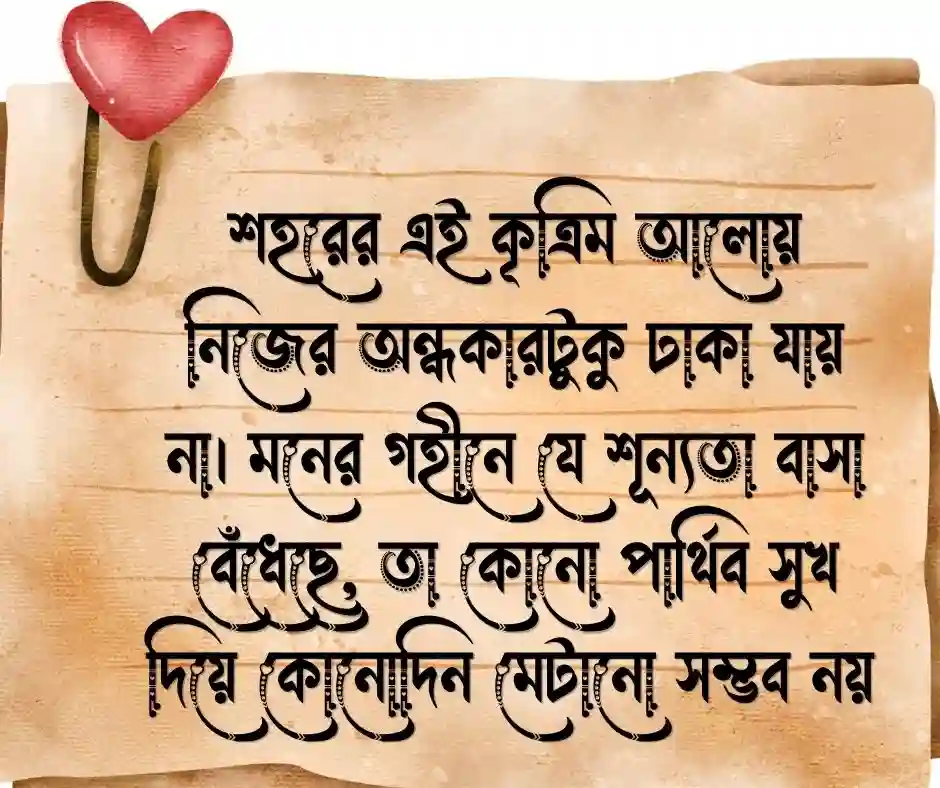 শহরের এই কৃত্রিম আলোয়
নিজের অন্ধকারটুকু ঢাকা যায়
না। মনের গহীনে যে শূন্যতা বাসা
বেঁধেছে, তা কোনো পার্থিব সুখ
দিয়ে কোনোদিন মেটানো সম্ভব নয়